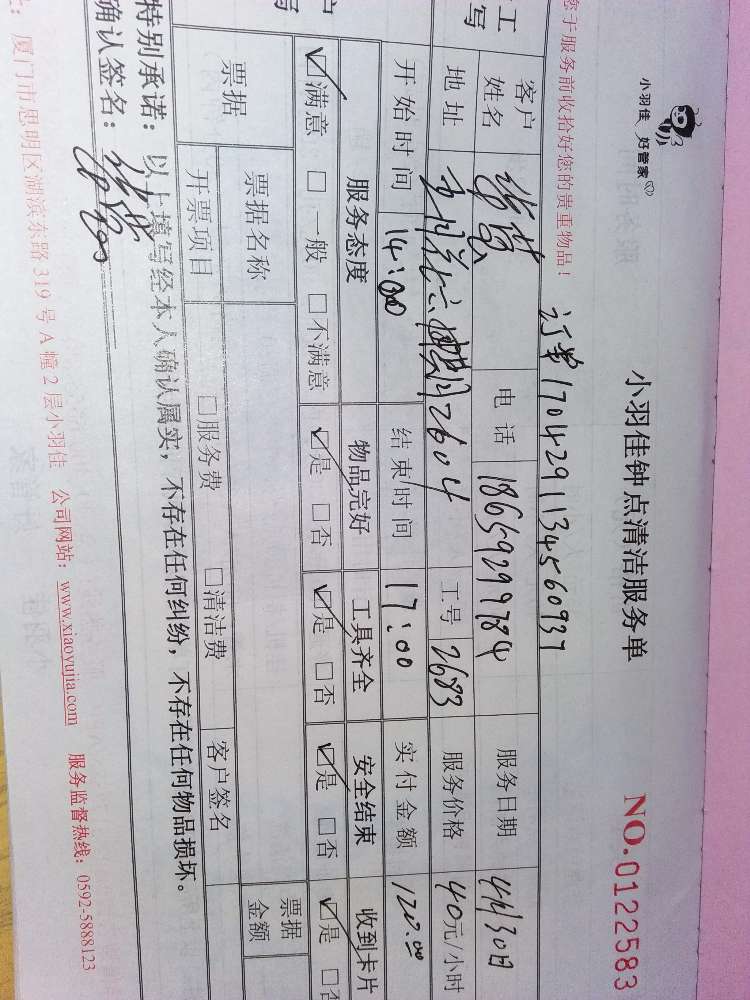 小羽佳 好管家
小羽佳钟点清洁服务单
NO.0122583
订单1704291134560937
您于服务前收拾好您的贵重物品！
工
写
客户
姓名
电 话 18659299784
服务日期 4月30日
地 址 2604
工号 2683
服务价格 40元/小时
开始时间 14:00
结束时间 17:00
实付金额 120.00
户
写
服务态度 物品完好 工具齐全 安全结束 收到卡片
☑满意 □一般 □不满意 ☑是 □否 ☑是 □否 ☑是 □否 ☑是 □否
票据
票据名称
票据
金额
开票项目 □服务费 □清洁费 客户签名
特别承诺：以上填写经本人确认属实，不存在任何纠纷，不存在任何物品损坏。
确认签名：
：厦门市思明区湖滨东路319号A幢2层小羽佳 公司网站：www.xiaoyujia.com 服务监督热线：0592-5888123